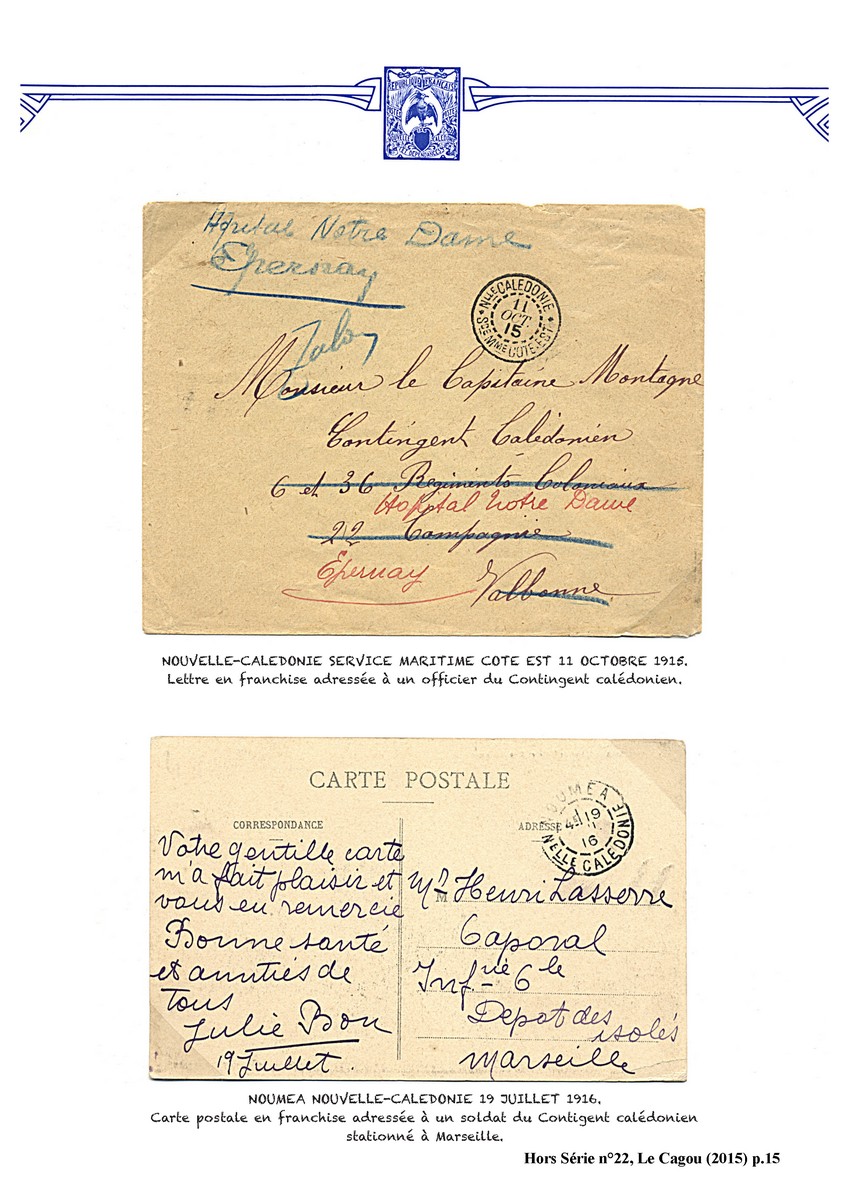 REPUBLIQUE FRANÇAISE
Hôpital Notre Dame
Epernay
NLLE CALEDONIE
11
OCT.
15
SCE MME COTE-EST
Monsieur le Capitaine Montagne
Contingent Calédonien
6 et 36 Régiments Coloniaux
Hopital Notre Dame
22 Compagnie
Epernay
Valbonne
NOUVELLE-CALEDONIE SERVICE MARITIME COTE EST 11 OCTOBRE 1915.
Lettre en franchise adressée à un officier du Contingent calédonien.
CARTE POSTALE
NOUMEA
19
16
NELLE CALEDONIE
CORRESPONDANCE
ADRESSE
Votre gentille carte
m'a fait plaisir et
vous en remercie
Bonne santé
et amitiés de
tous
Julie Bon
19 Juillet
Mr Henri Lasserre
Caporal
Infrie 6 le
Depot des
isolés
Marseille
NOUMEA NOUVELLE-CALEDONIE 19 JUILLET 1916.
Carte postale en franchise adressée à un soldat du Contigent calédonien
stationné à Marseille.
Hors Série n°22, Le Cagou (2015) p.15